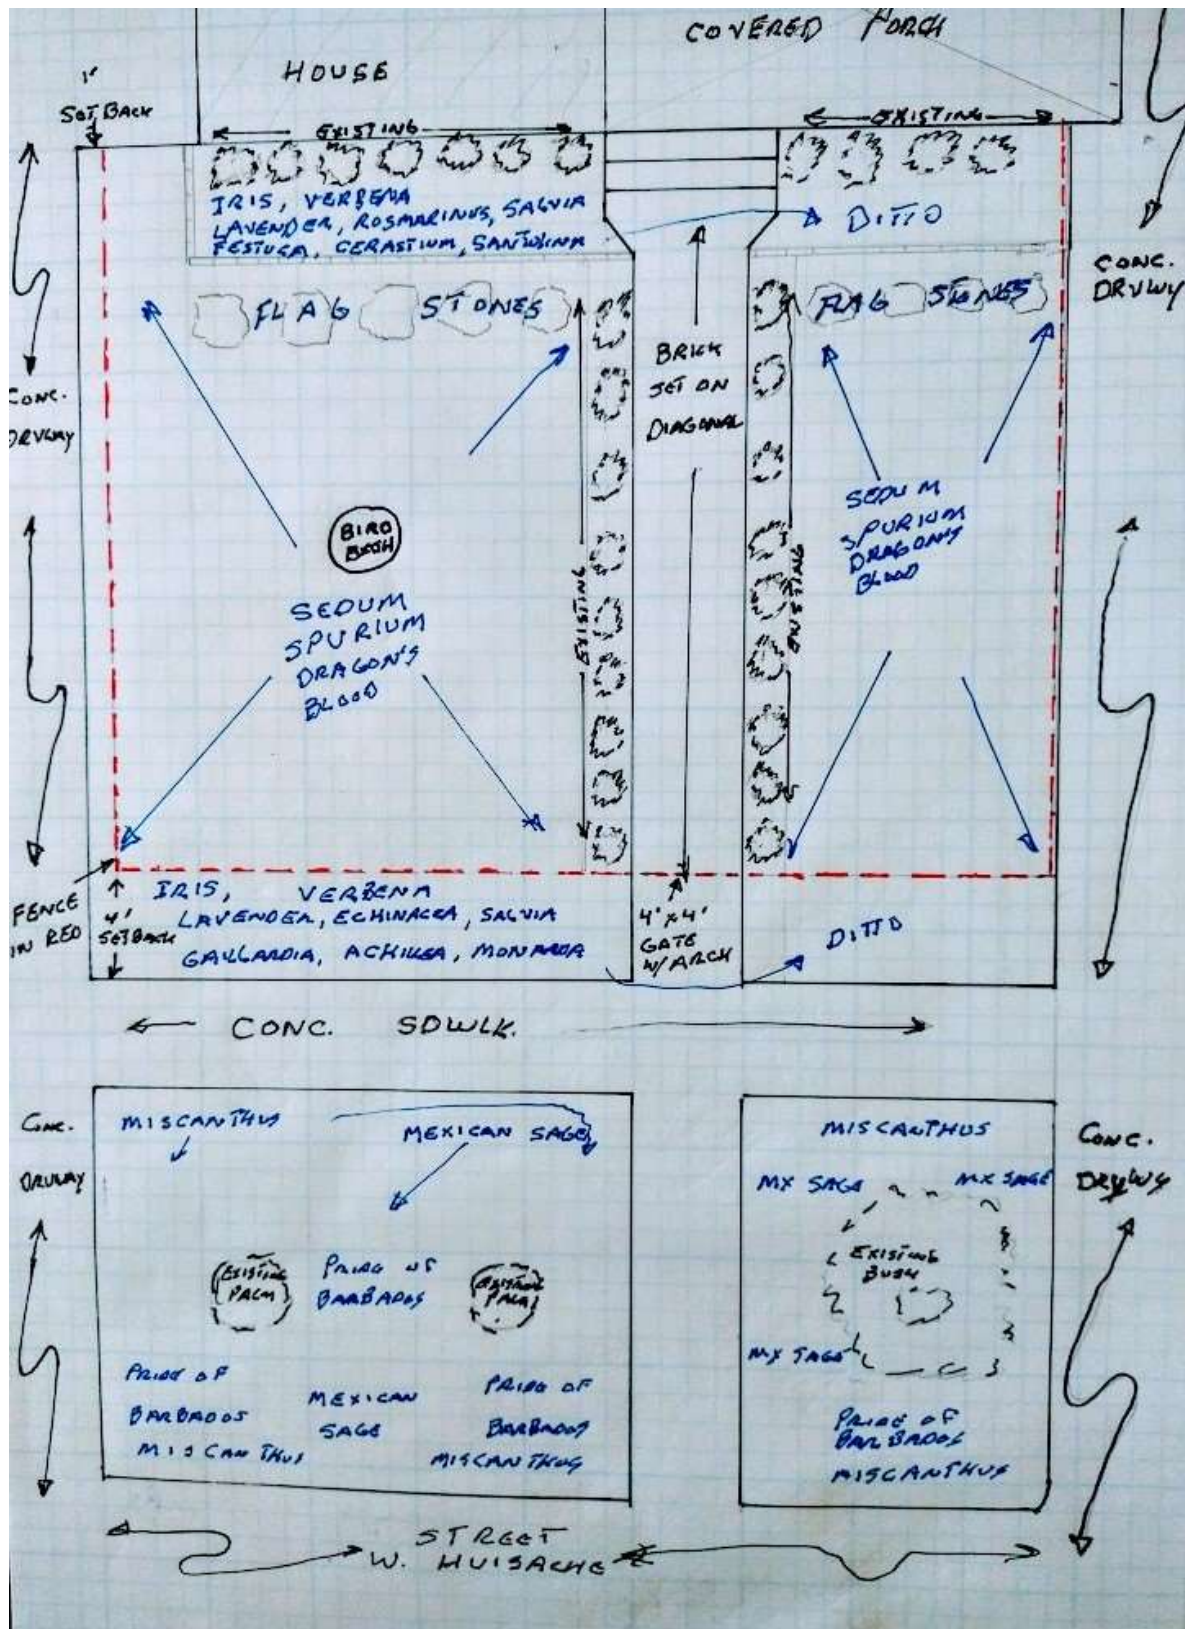 COVERED PORCH
HOUSE
1'
SET BACK
EXISTING
EXISTING
IRIS, VERBENA
LAVENDER, ROSMARINUS, SALVIA
FESTUCA, CERASTIUM, SANTOLINA
DITTO
CONC.
DRVWY
FLAG STONES
FLAG STONES
BRICK
SET ON
DIAGONAL
CONC.
DRVWAY
BIRD
BATH
SEDUM
SPURIUM
DRAGON'S
BLOOD
EXISTING
EXISTING
SEDUM
SPURIUM
DRAGONS
BLOOD
FENCE
IN RED
4'
SETBACK
IRIS, VERBENA
LAVENDER, ECHINACEA, SALVIA
GAILLARDIA, ACHILLEA, MONARDA
4' x 4'
GATE
W/ ARCH
DITTO
CONC. SDWLK.
CONC.
DRVWAY
MISCANTHUS
MEXICAN SAGE
EXISTING
PALM
PRIDE OF
BARBADOS
EXISTING
PALM
PRIDE OF
BARBADOS
MISCANTHUS
MEXICAN
SAGE
PRIDE OF
BARBADOS
MISCANTHUS
MISCANTHUS
MX SAGE
MX SAGE
EXISTING
BUSH
MX SAGE
PRIDE OF
BARBADOS
MISCANTHUS
CONC.
DRVWY
STREET
W. HUISACHE